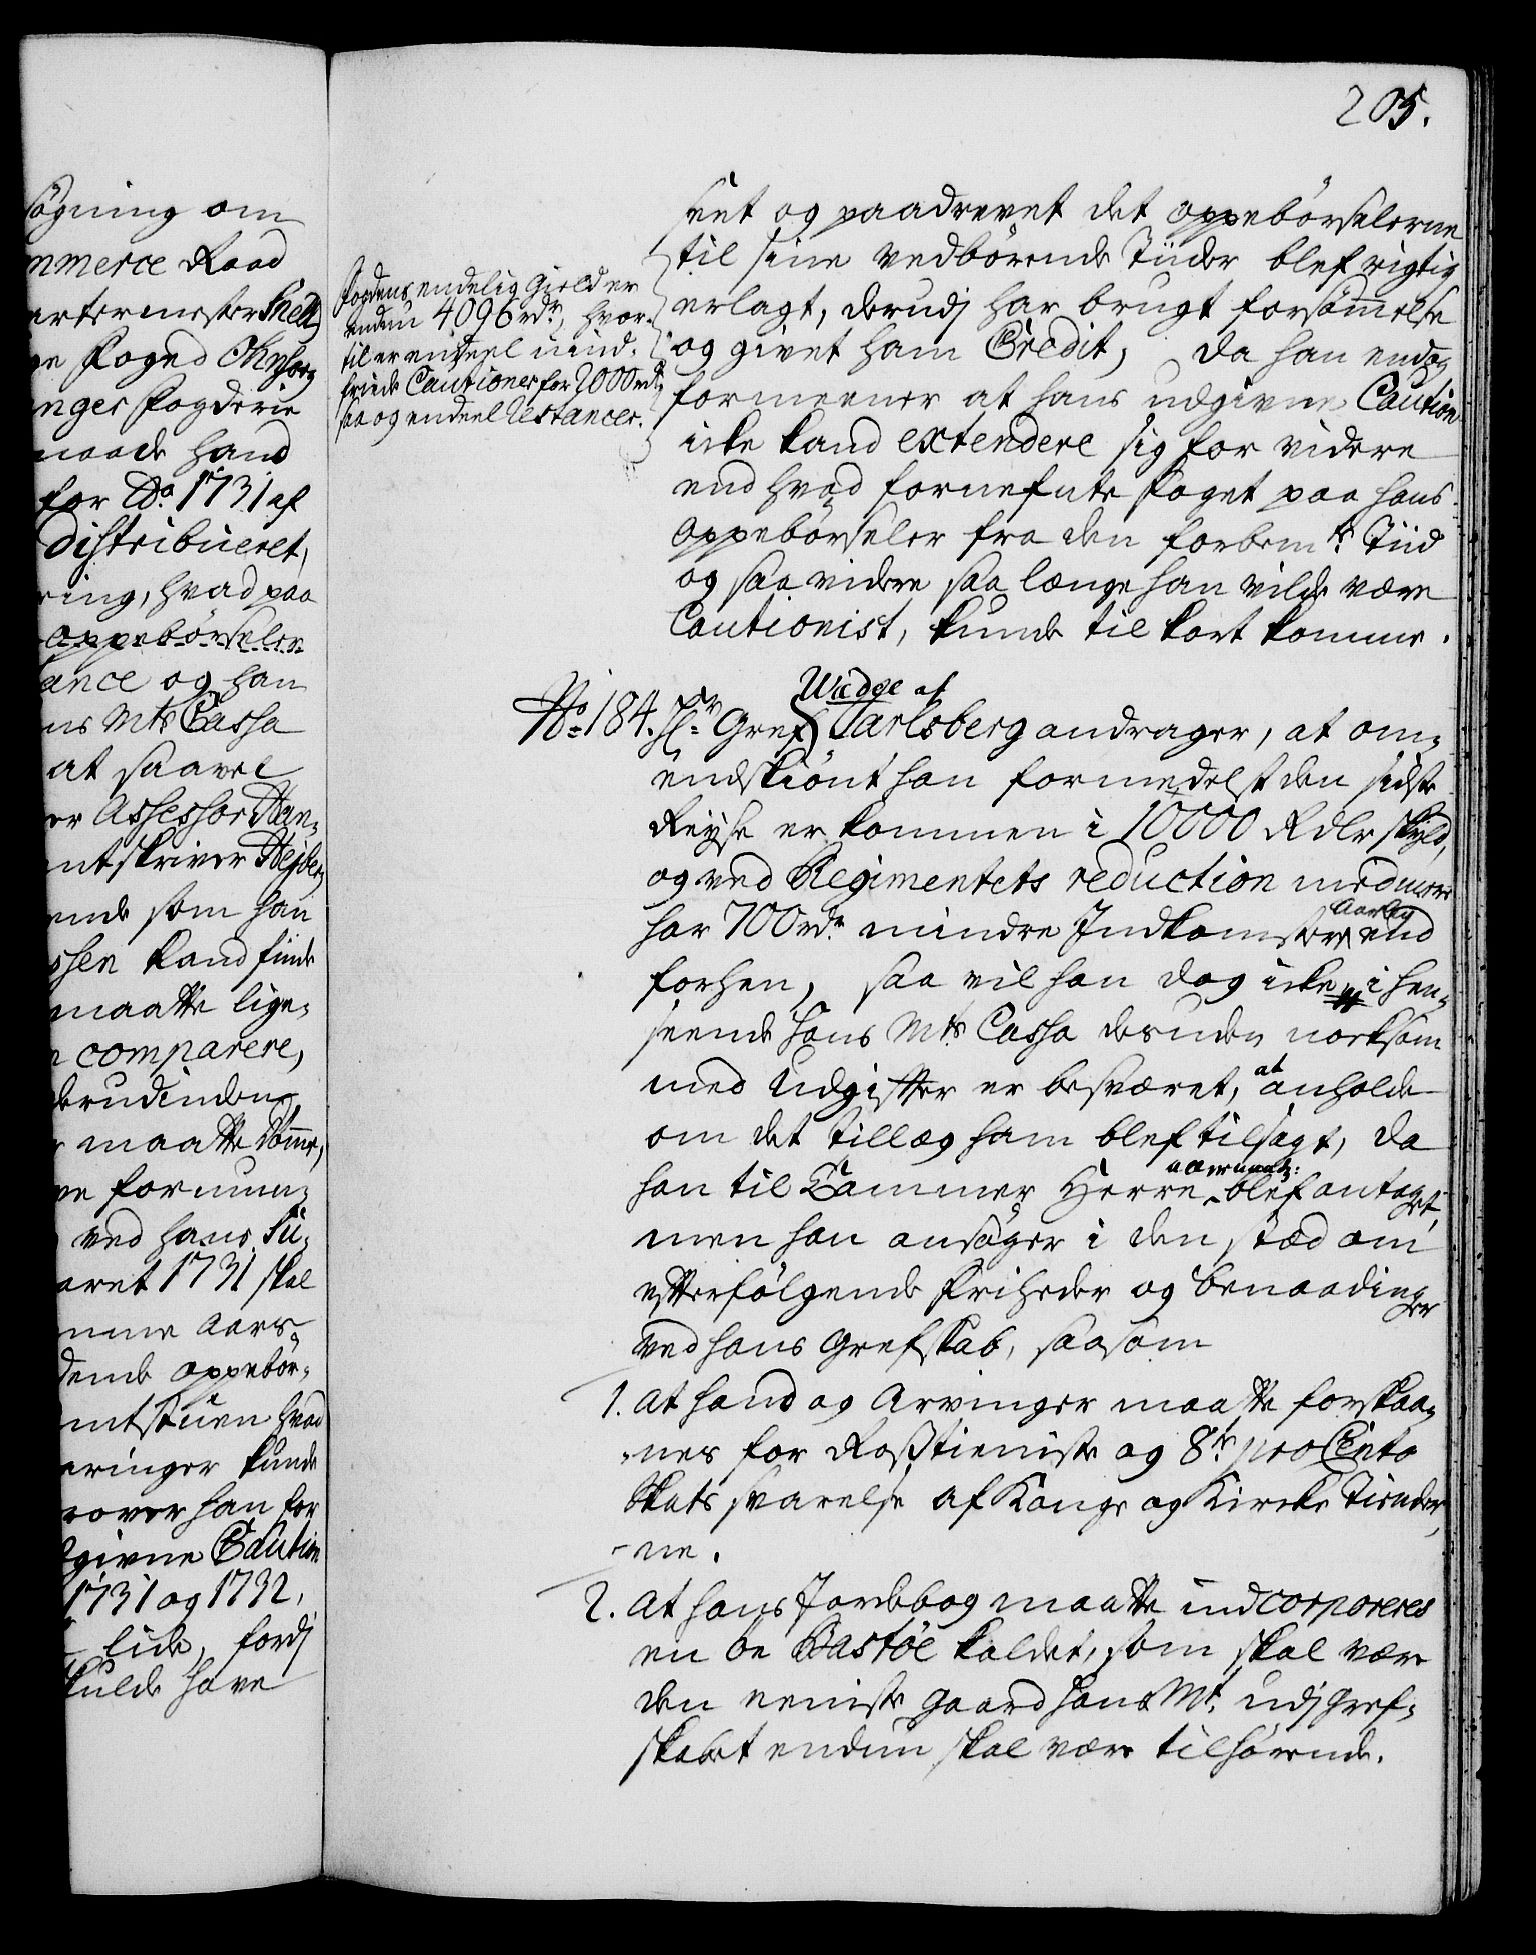 205.
søgning om
mmerce Raad
artermester Snell
ge Foged Ohnsorg
nger Fogderie
maade hand
for Ao. 1731 af
distribueret,
ring, hvad paa
oppebørseler
ance og han
ns Mts Cassa
at saavel
or Assessor Han-
ntskriver Wejberg
ende som han
ssen kand finde
maatte lige-
n comparere,
derudinden
maatte Dømme,
ve formun-
ved hans Su-
aaret 1731 skal
mme Aars
dende oppebør-
mtstuen hvad
eringer kunde
rover han for
dgivne Caution
1731 og 1732,
lide, fordj
skulde have
Fogdens endelig Gield er
endnu 4096 rdr, hvor-
til er endeel uind-
friede Cautioner for 2000 rdr,
saa og endeel Restancer.
seet og paadrevet det oppebørselerne
til sine vedbørende Tiider blef rigtig
erlagt, derudj har brugt forsømmelse
og givet ham Credit, da han endog
formeener at hans udgivne Caution
icke kand extendere sig for videre
end hvad fornefnte Foget paa hans
Oppebørseler fra den forbemte Tiid
og saa videre saa længe han vilde være
Cautionist, kunde til kort komme.
No. 184. Hr. Gref Wedge af Jarlsberg andrager, at om-
endskiønt han formedelst den sidste
Reijse er kommen i 10000 Rdlr skyld,
og ved Regimentets reduction med mere
har 700 rdr mindre Indkomster Aarlig end
forhen, saa vil han dog icke i hen-
seende Hans Mts Cassa desuden noksom
med Udgifter er besværet, at anholde
om det tillæg ham blef tilsagt, da
han til Cammer Herre allernaad: blef antaget,
men han ansøger i den stæd om
efterfølgende friheder og benaadinger
ved hans Grefskab, saasom
1. At hand og Arvinger maatte forskaa-
nes for Rosstieniste og 8te pro Cento
Skats svarelse af Konge og Kircke Tiender-
ne.
2. At hans Jordebog maatte indcorporeres
en øe Bastøe kaldet, som skal være
den eeniste Gaard Hans Mt. udj Gref-
skabet endnu skal være tilhørende.